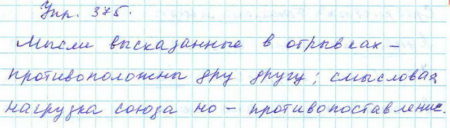 Упр. 375.
Мысли высказанные в отрывках –
противоположны дру другу; смысловая
нагрузка союза но – противопоставление.